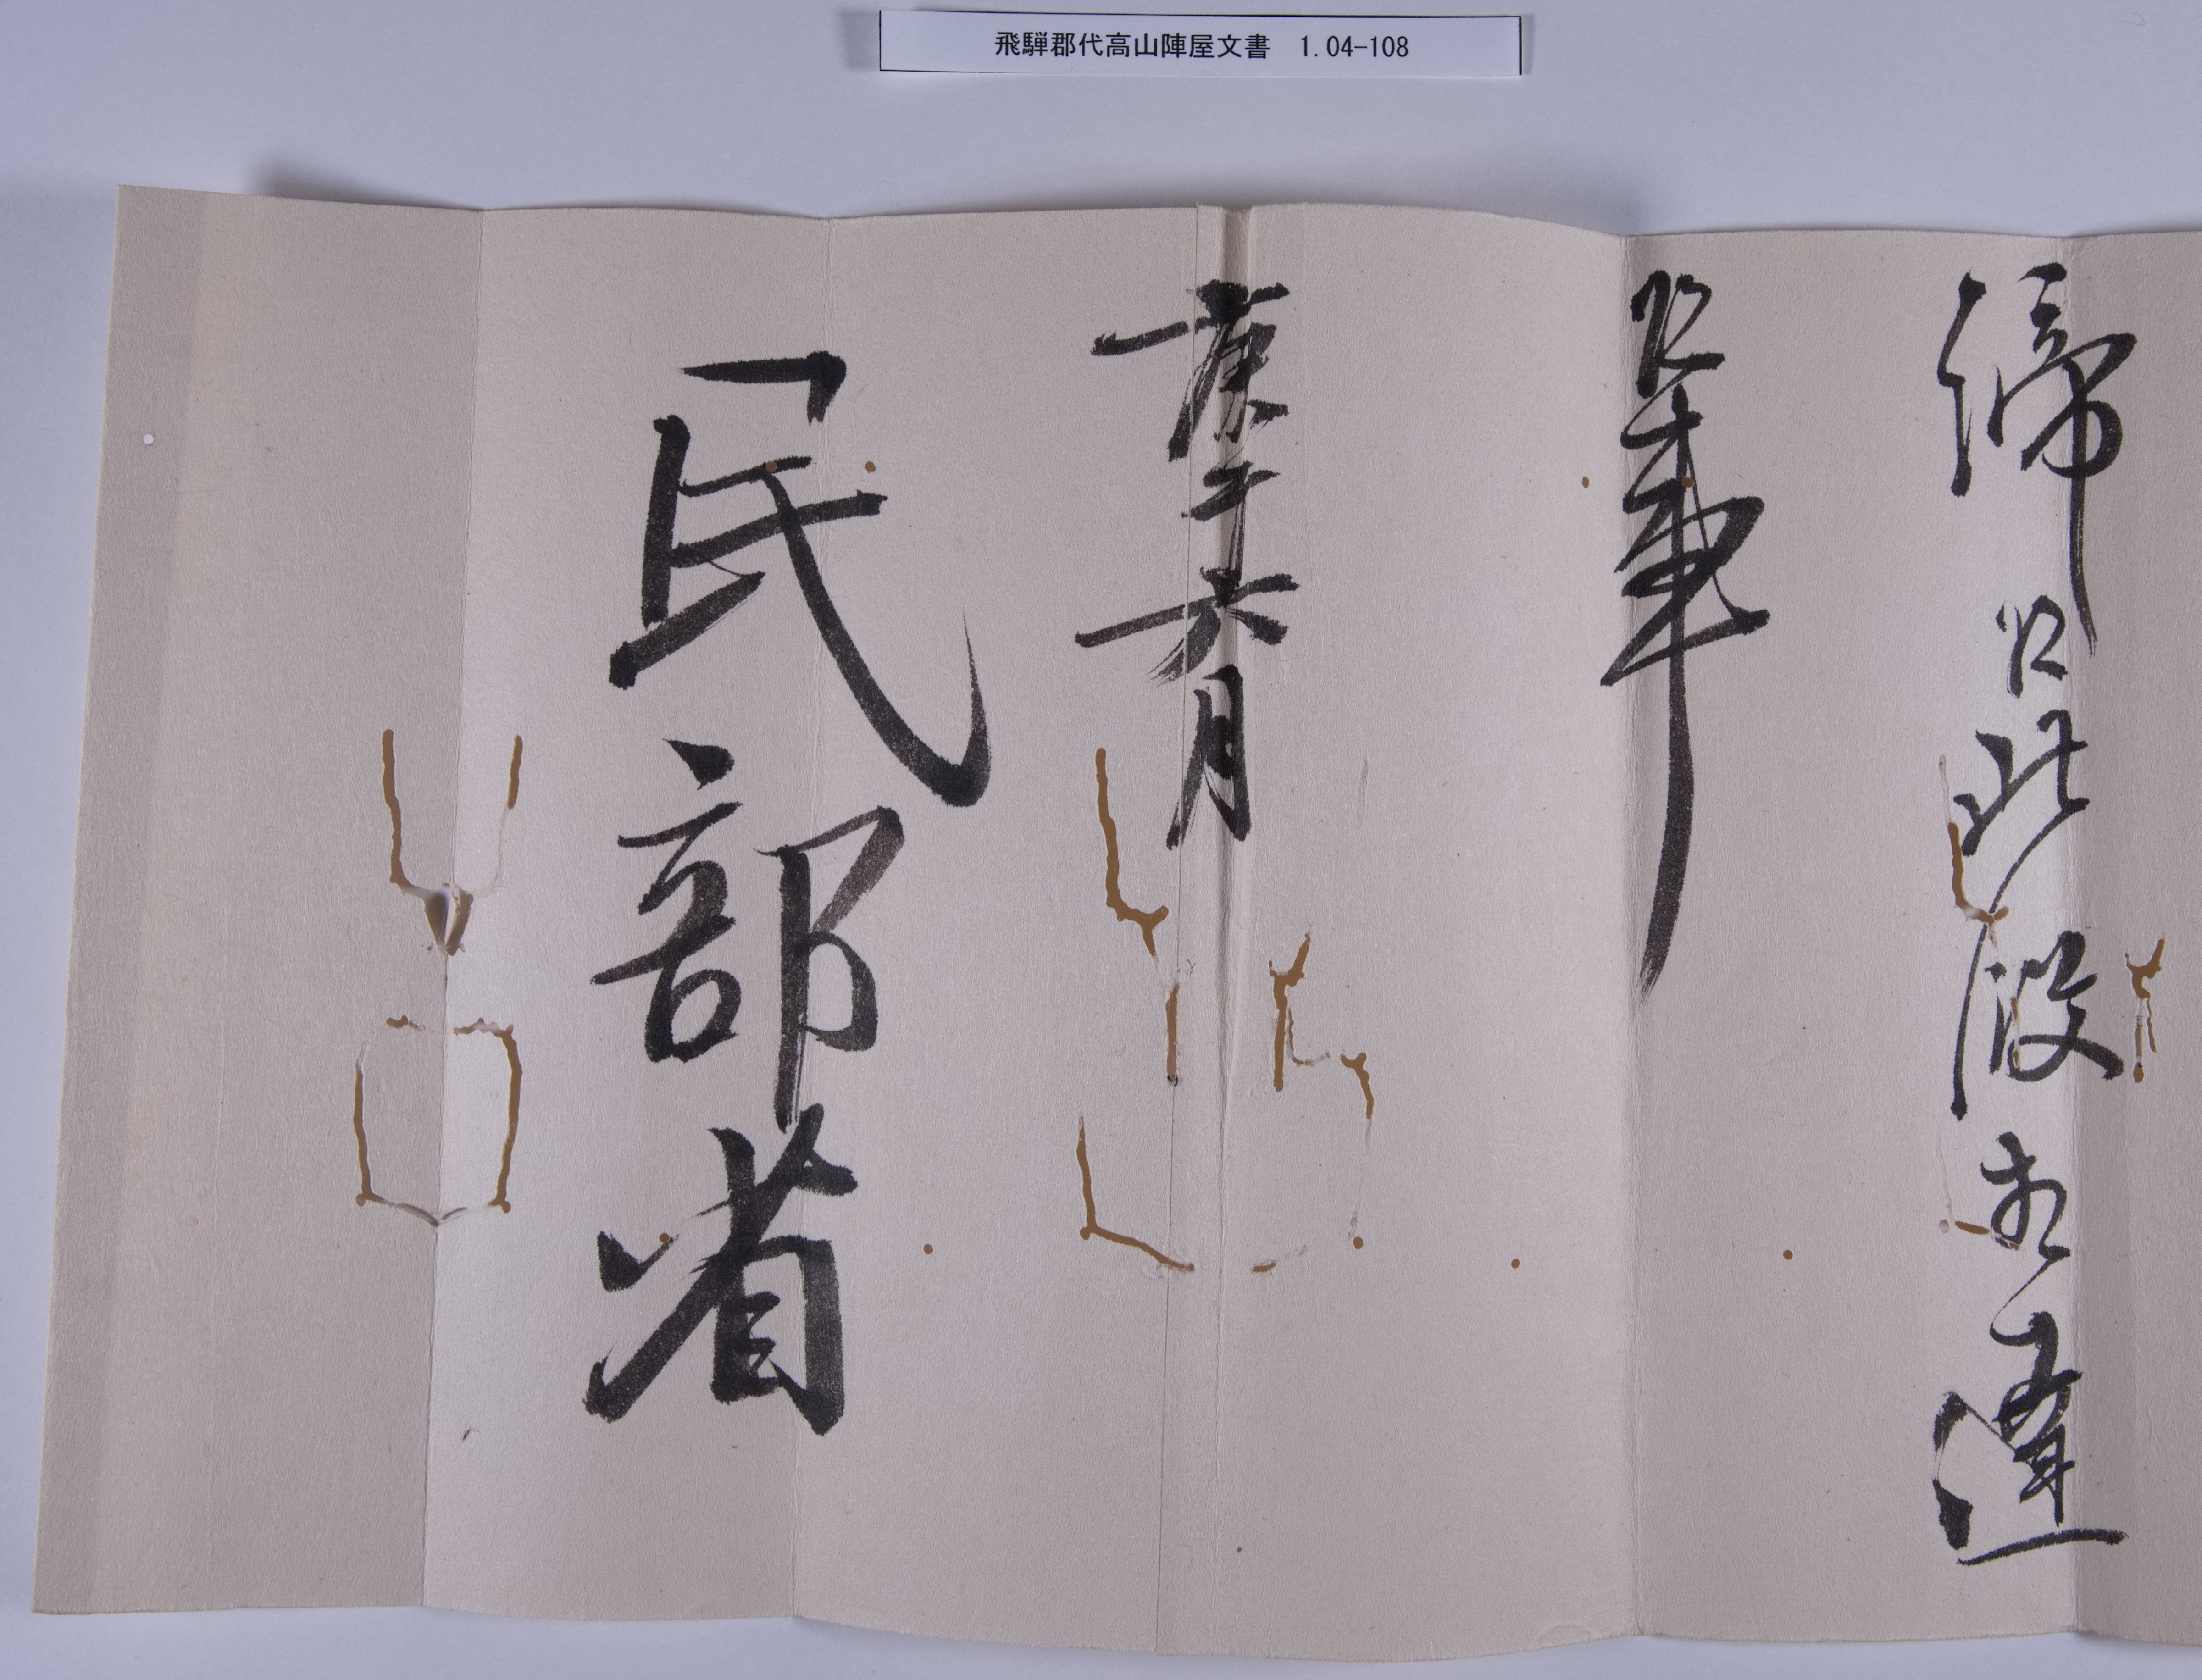 飛騨郡代高山陣屋文書 1.04-108
締候此段相達
候事
庚午六月
民部省